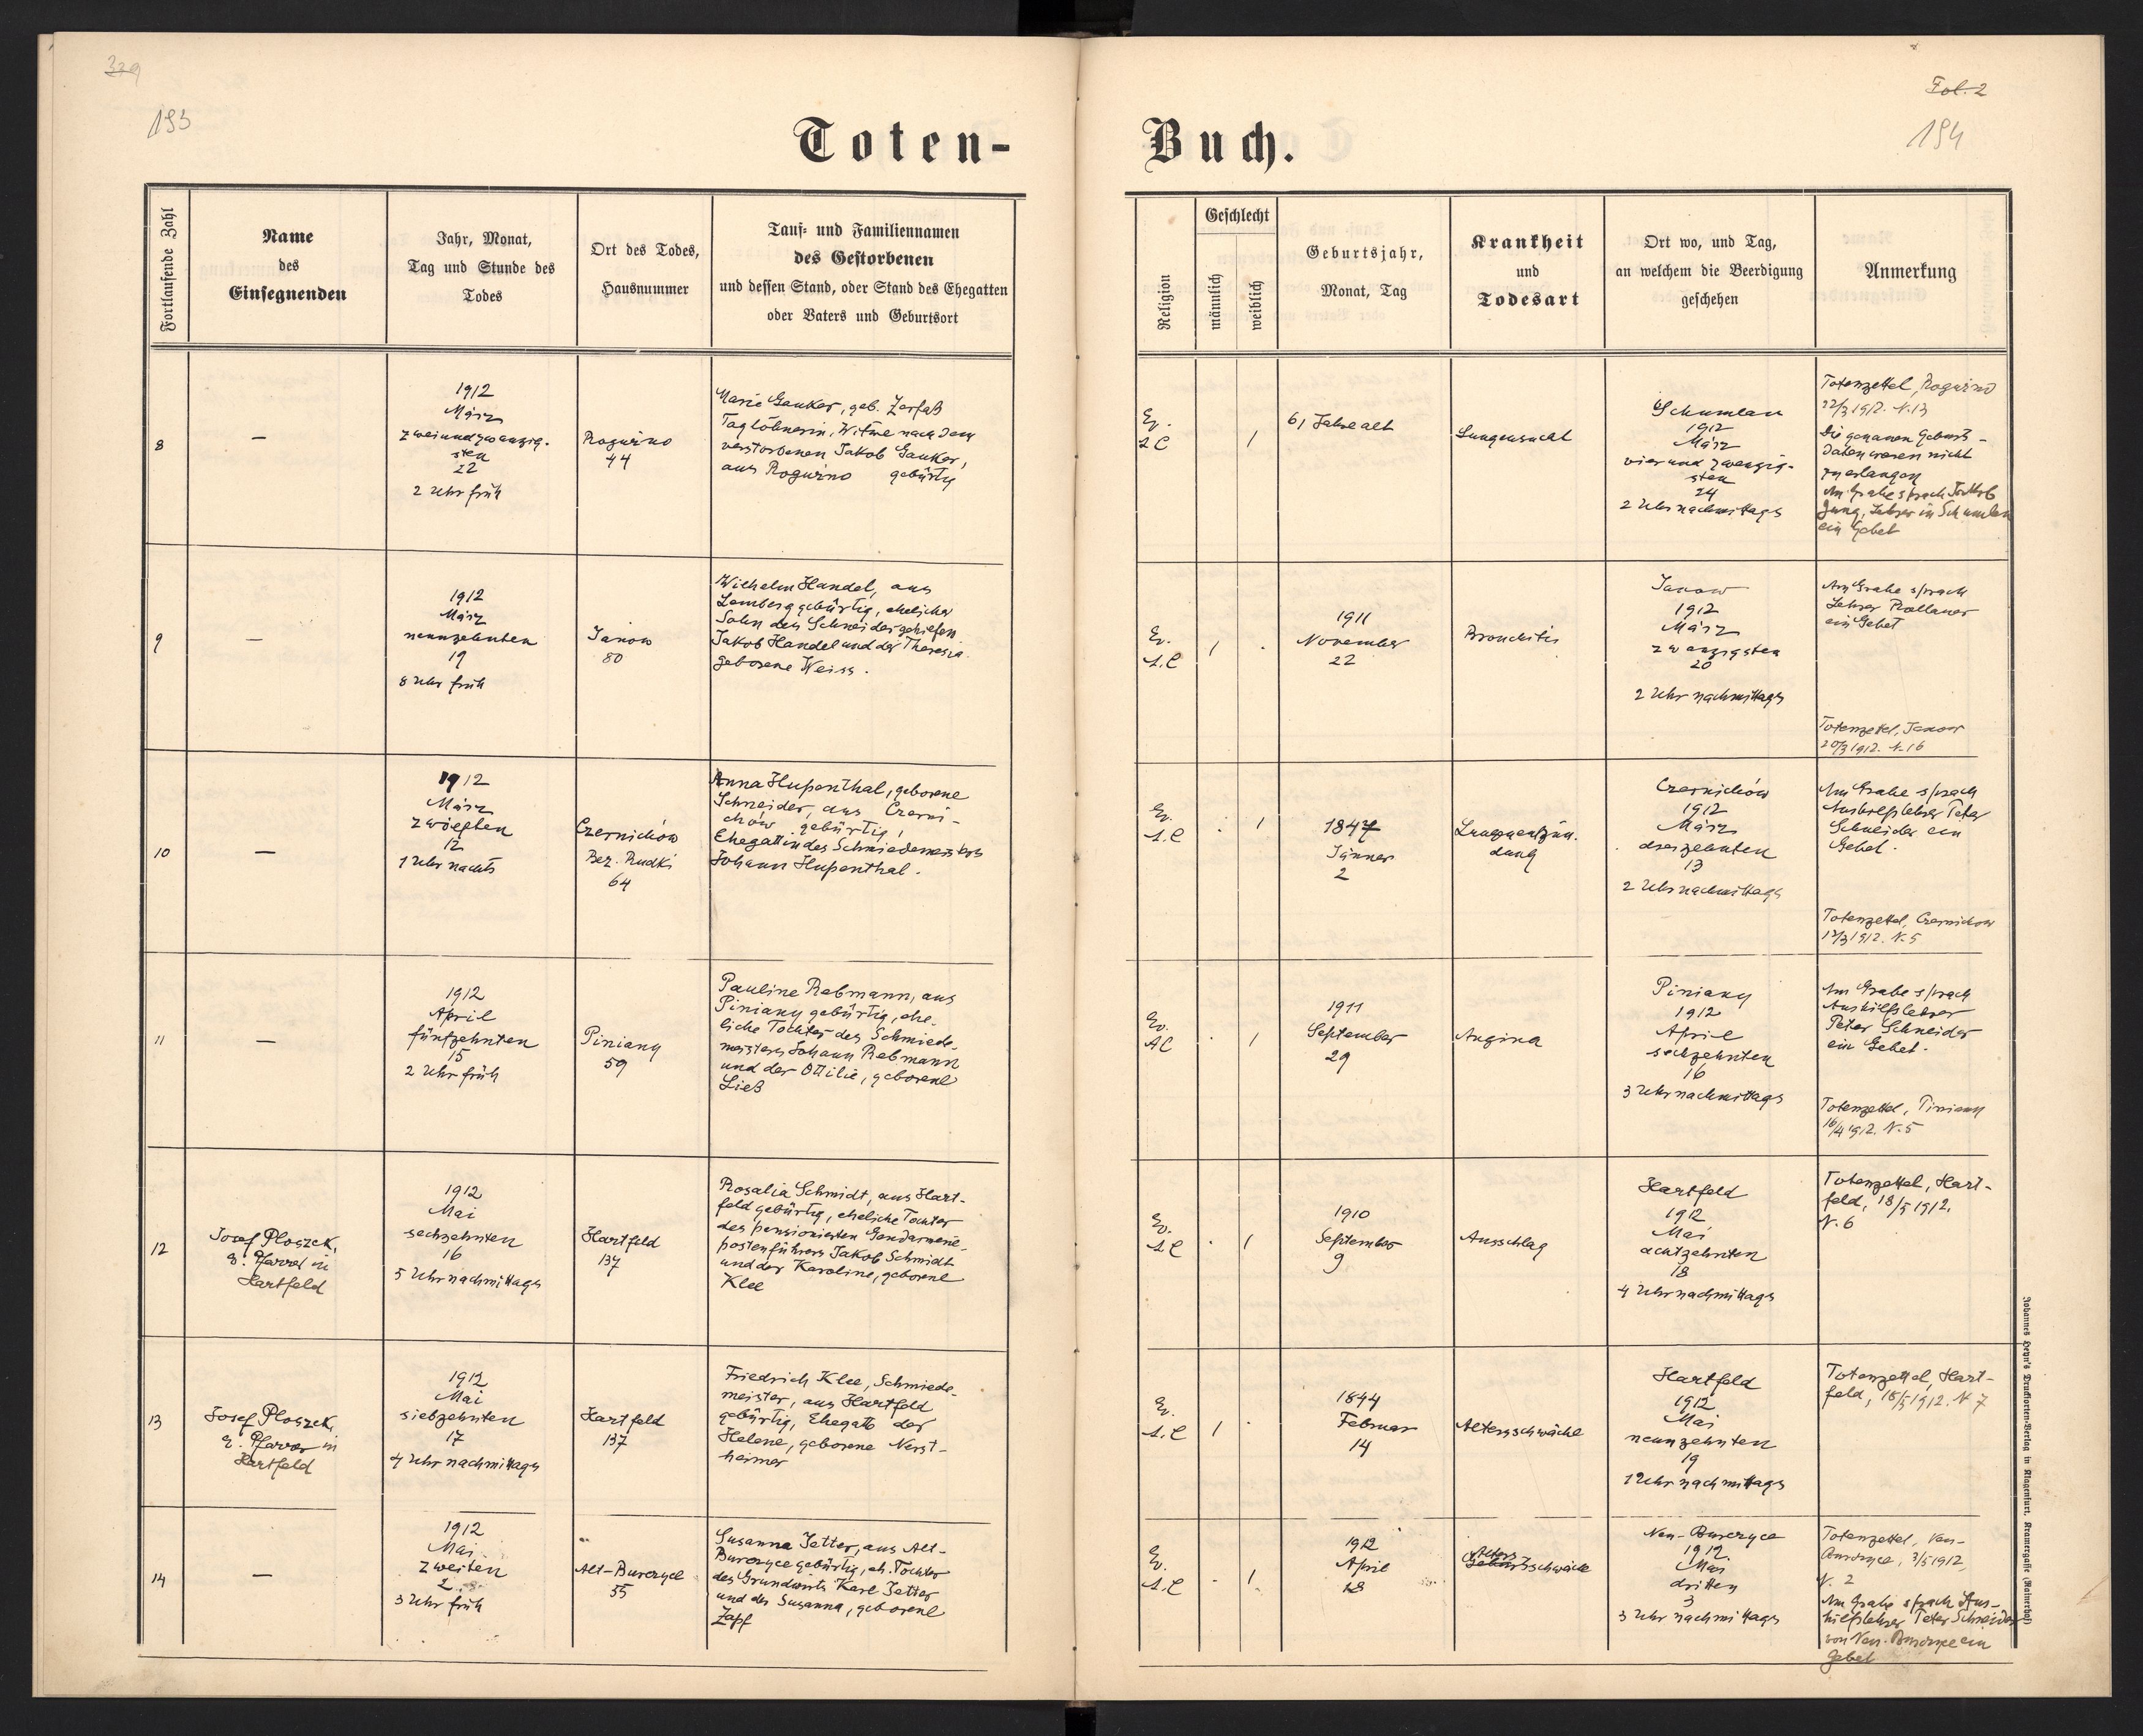 339
193
Toten-
Fortlaufende Zahl
Name
des
Einsegnenden
Jahr, Monat,
Tag und Stunde des
Todes
Ort des Todes,
Hausnummer
Tauf- und Familiennamen
des Gestorbenen
und dessen Stand, oder Stand des Ehegatten
oder Vaters und Geburtsort
8
—
1912
März
zweiundzwanzig-
sten
22
2 Uhr früh
Roguźno
44
Marie Gauker, geb. Zerfaß
Taglöhnerin, Witwe nach dem
verstorbenen Jakob Gauker,
aus Roguźno gebürtig
9
—
1912
März
neunzehnten
19
8 Uhr früh
Janow
80
Wilhelm Handel, aus
Lemberg gebürtig, ehelicher
Sohn des Schneidergehilfen
Jakob Handel und der Theresia
geborene Weiss.
10
—
1912
März
zwölften
12
1 Uhr nachts
Czernichów
Bez. Rudki
64
Anna Hupenthal, geborene
Schneider, aus Czerni-
chów gebürtig,
Ehegattin des Schmiedemeisters
Johann Hupenthal.
11
—
1912
April
fünfzehnten
15
2 Uhr früh
Piniany
59
Pauline Rebmann, aus
Piniany gebürtig, ehe-
liche Tochter des Schmiede-
meisters Johann Rebmann
und der Ottilie, geborene
Ließ
12
Josef Ploszek,
ev. Pfarrer in
Hartfeld
1912
Mai
sechzehnten
16
5 Uhr nachmittags
Hartfeld
137
Rosalia Schmidt, aus Hart-
feld gebürtig, eheliche Tochter
des pensionierten Gendarmerie-
postenführers Jakob Schmidt
und der Karoline, geborene
Klee
13
Josef Ploszek,
ev. Pfarrer in
Hartfeld
1912
Mai
siebzehnten
17
4 Uhr nachmittags
Hartfeld
137
Friedrich Klee, Schmiede-
meister, aus Hartfeld
gebürtig, Ehegatte der
Helene, geborene Nerst-
heimer
14
—
1912
Mai
zweiten
2
3 Uhr früh
Alt-Burczyce
55
Susanna Jetter, aus Alt-
Burczyce gebürtig, eh. Tochter
des Grundwirts Karl Jetter
und der Susanna, geborene
Zapf
Fol. 2
194
Buch.
Religion
Geschlecht
männlich
weiblich
Geburtsjahr,
Monat, Tag
Krankheit
und
Todesart
Ort wo, und Tag,
an welchem die Beerdigung
geschehen
Anmerkung
Ev.
A.C
1
61 Jahre alt
Lungensucht
Schumlau
1912
März
vierundzwanzig-
sten
24
2 Uhr nachmittags
Totenzettel, Roguźno
22/3 1912. N. 13
Die genauen Geburts-
daten waren nicht
zu erlangen
Am Grabe sprach Jakob
Jung, Lehrer in Schumlau
ein Gebet
Ev.
A.C
1
1911
November
22
Bronchitis
Janow
1912
März
zwanzigsten
20
2 Uhr nachmittags
Am Grabe sprach
Lehrer Rollauer
ein Gebet
Totenzettel, Janow
20/3 1912. N. 16
Ev.
A.C
1
1847
Jänner
2
Lungenentzün-
dung
Czernichów
1912
März
dreizehnten
13
2 Uhr nachmittags
Am Grabe sprach
Aushilfslehrer Peter
Schneider ein
Gebet.
Totenzettel, Czernichow
12/3 1912. N. 5
Ev.
AC
1
1911
September
29
Angina
Piniany
1912
April
sechzehnten
16
3 Uhr nachmittags
Am Grabe sprach
Aushilfslehrer
Peter Schneider
ein Gebet.
Totenzettel, Piniany
16/4 1912. N. 5
Ev.
A.C
1
1910
September
9
Ausschlag
Hartfeld
1912
Mai
achtzehnten
18
4 Uhr nachmittags
Totenzettel, Hart-
feld, 18/5 1912.
N. 6
Ev.
A.C
1
1844
Februar
14
Altersschwäche
Hartfeld
1912
Mai
neunzehnten
19
1 Uhr nachmittags
Totenzettel, Hart-
feld, 18/5 1912. N 7
Ev.
A.C
1
1912
April
18
schwäche
Neu-Burczyce
1912.
Mai
dritten
3
3 Uhr nachmittags
Totenzettel, Neu-
Burczyce, 3/5 1912,
N. 2
Am Grabe sprach Aus-
hilfslehrer Peter Schneider
von Neu-Burczyce ein
Gebet
Johannes Heyn's Drucksorten-Verlag in Klagenfurt, Kramergasse (Rainerhof)